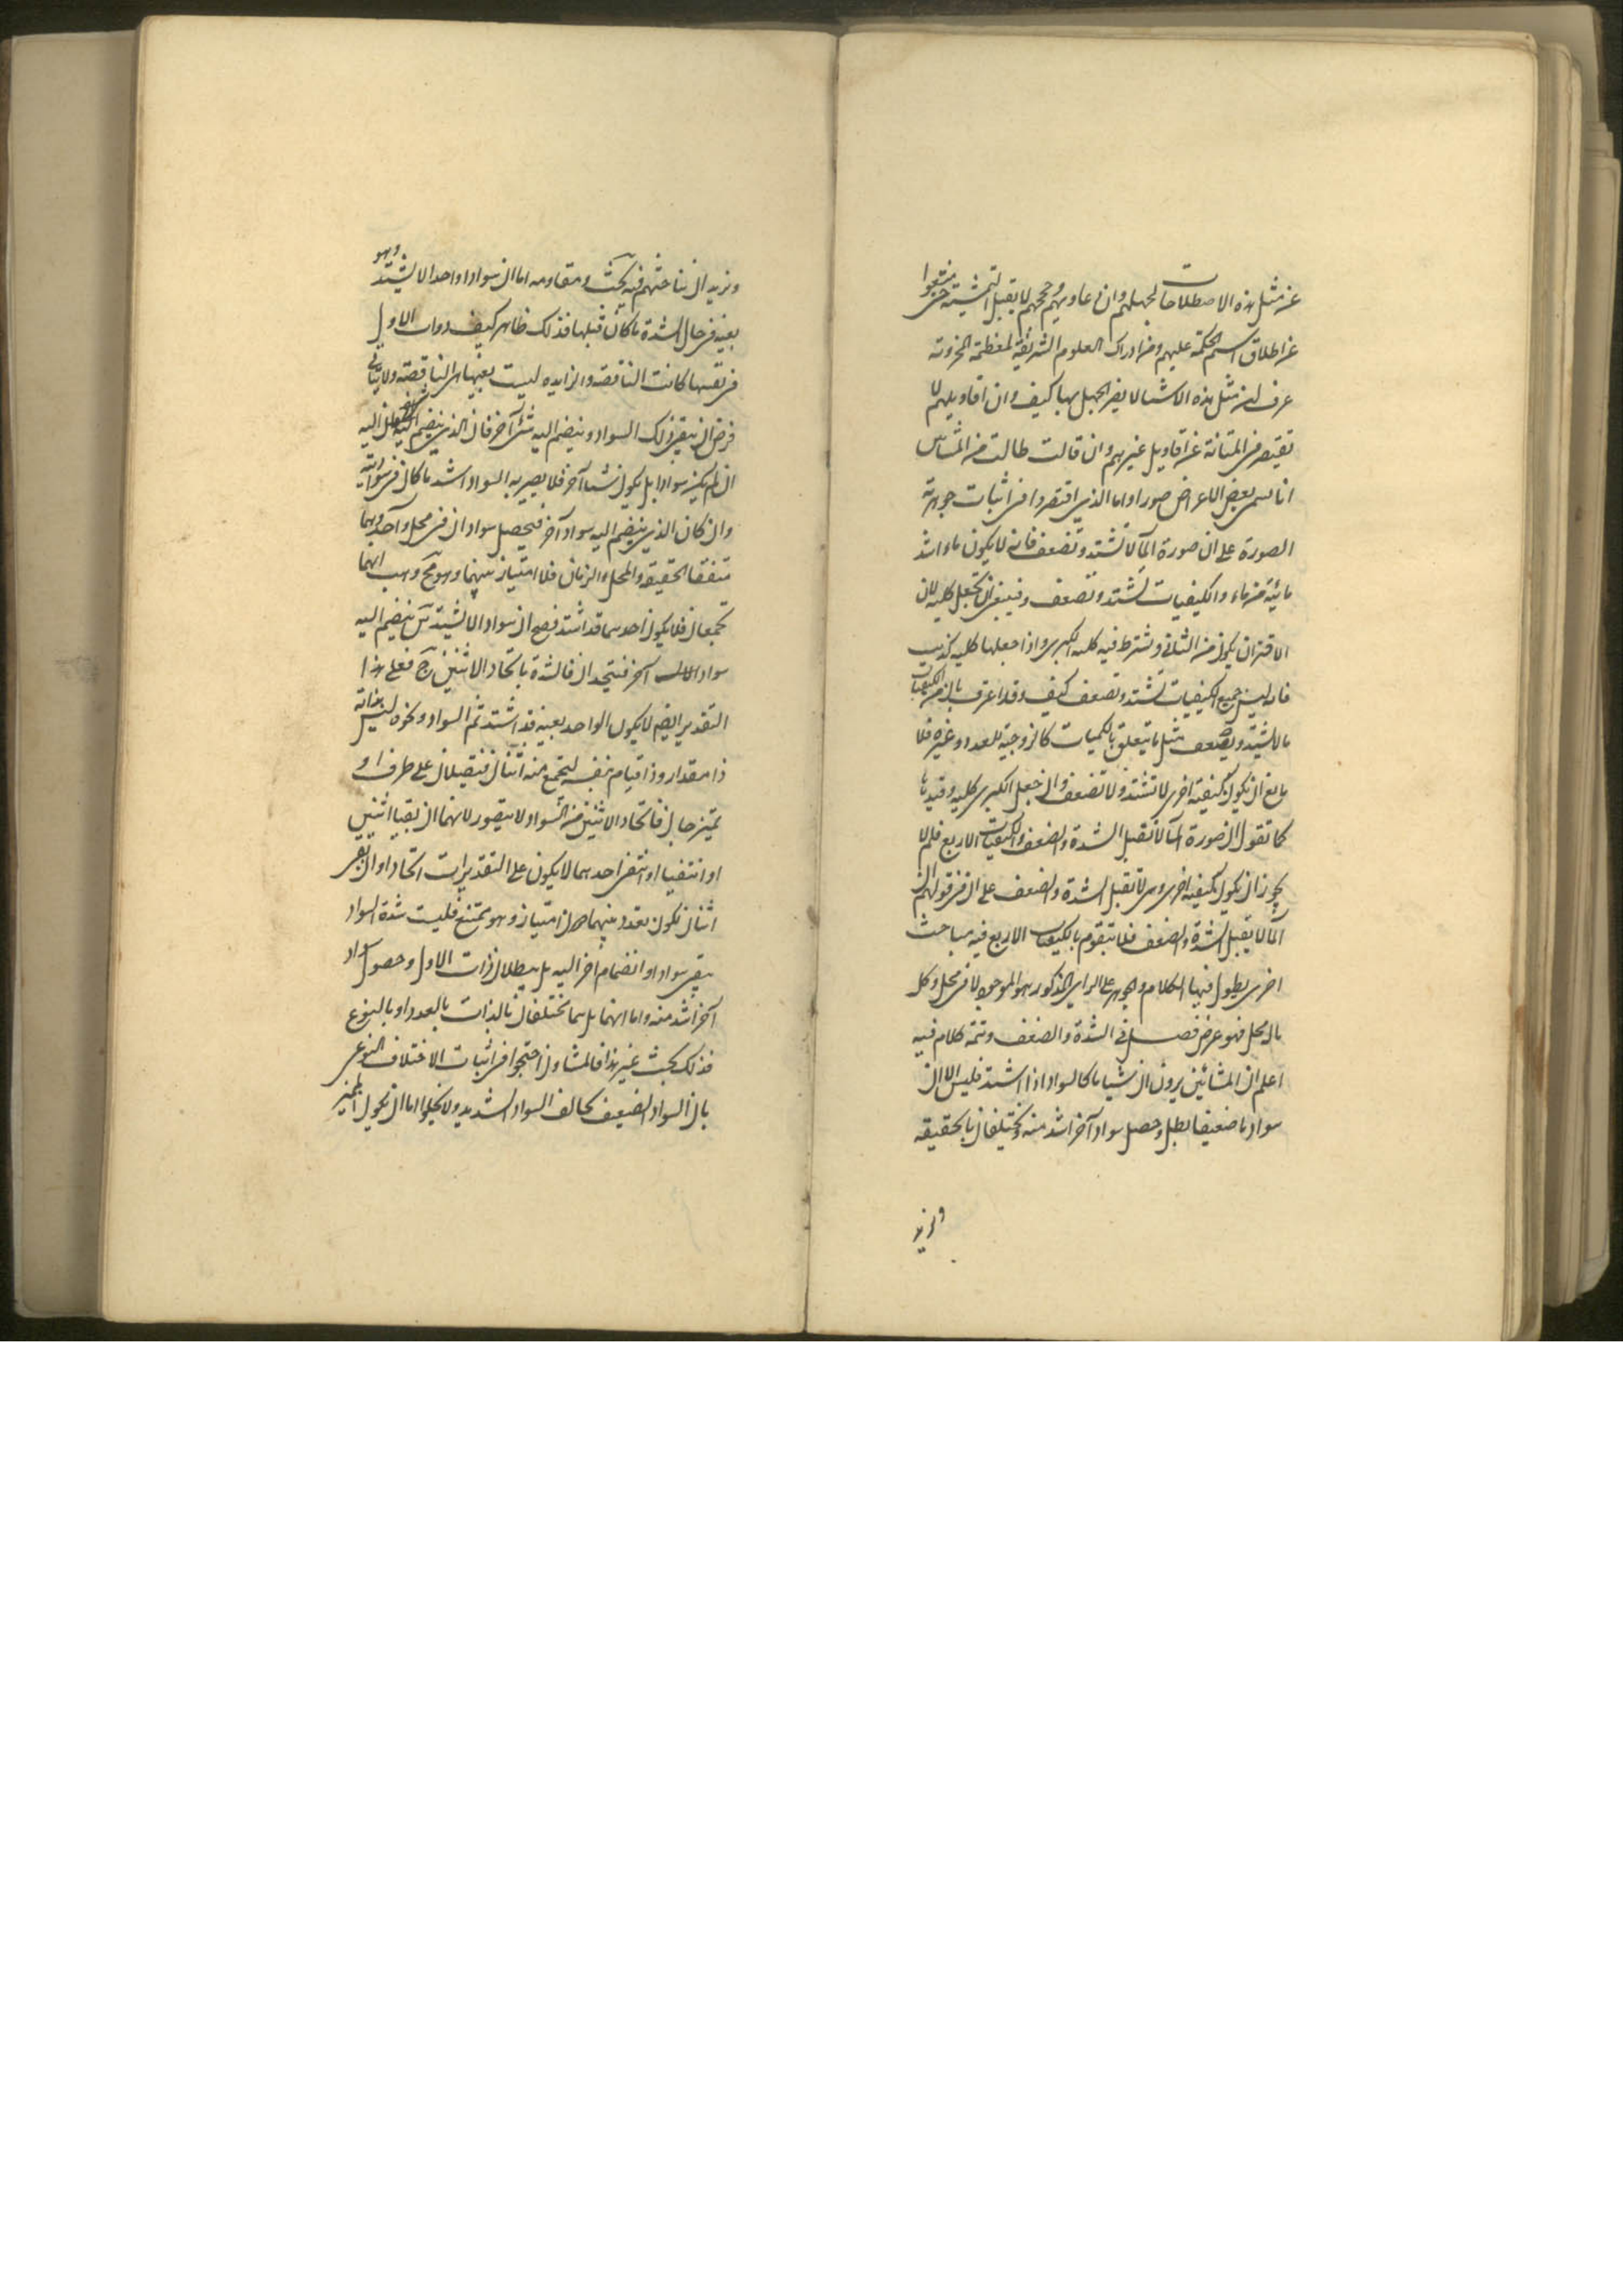 عن مثل هذه الاصطلاحات لجهلهم وان دعاويهم وحججهم لا يقبل التمشية حتى منعوا
عن اطلاق اسم الحكمة عليهم ومن ادراك العلوم الشريفة المعظمة المخزونة
عرف ان مثل هذه الاشيا لا يضر الجهل بها كيف وان اقاويلهم لا
تقصر في المتانة عن اقاويل غيرهم وان قالت طالت من المشائين
انا نسمى بعض الاعراض صورا واما الذى اقتصروا فى اثبات جوهرية
الصورة على ان صورة الما لا تشتد وتضعف فانه لا يكون ماء اشد
مائية من ماء والكيفيات تشتد وتضعف فينبغى ان تجعل كلية لان
الاقتران يكون من الثانى ويشترط فيه كلية الكبرى واذا جعلها كلية كذبت
فانه ليس جميع الكيفيات تشتد وتضعف كيف وقد اعترف بان من الكيفيات
ما لا يشتد ويضعف مثل ما يتعلق بالكميات كالزوجية للعدد وغيره فلا
مانع ان يكون كيفية اخرى لا تشتد ولا تضعف وان جعل الكبرى كلية وقيدها
كما تقول ان صورة الما لا تقبل الشدة والضعف والكيفيات الاربع فلم لا
يجوز ان يكون كيفية اخرى وهى لا تقبل الشدة والضعف على ان فى قولهم ان
الما لا يقبل الشدة والضعف فلا يتقوم بالكيفيات الاربع فيه مباحث
اخرى يطول فيها الكلام والجوهر على الراى المذكور هو الموجود لا فى محل وكل
ما له محل فهو عرض فصل فى الشدة والضعف وتتمة كلام فيه
اعلم ان المشائين يرون ان شيا ما كالسواد اذا اشتد فليس الا ان
سوادا ما ضعيفا بطل وحصل سواد آخر اشد منه ويختلفان بالحقيقة
ونريد
ونريد ان نباحثهم فيه بحث ومقاومه اما ان سوادا واحدا لا يشتد وهو
بعينه فى حال الشدة ما كان قبلها فذلك ظاهر كيف وذات الاول
فى نفسها كانت الناقصة والزايده ليست بعينها هى الناقصة ولا يتأتى
فرض ان يبقى ذلك السواد وينضم اليه شئ آخر فان الذى ينضم اليه
ان لم يكن سوادا بل يكون شيا آخر فلا يصير به السواد اشد ما كان فى سواديته
وان كان الذى ينضم اليه سواد آخر فيحصل سوادان فى محل واحد وهما
متفقا الحقيقة والمحل والزمان فلا امتياز بينهما وهو مح وهب انهما
يجتمعان فلا يكون احدهما قد اشتد فصح ان سوادا لا يشتد بان ينضم اليه
سواد آخر فيتحدان فالشدة باتحاد الاثنين مح فعلى هذا
التقدير ايضا لا يكون الواحد بعينه قد اشتد ثم السواد ونحوه ليس بذاته
ذا مقدار وذا قيام بنفسه ليجتمع منه اثنان فيتصلان على طرف او
تميز حاله فاتحاد الاثنين من السواد لا يتصور لانهما ان بقيا اثنين
او انتفيا او انتفى احدهما لا يكون على التقديرات اتحاد او ان بقى
اثنان فيكون بعدد بينهما امتياز وهو ممتنع فليست شدة السواد
ببقى سواد او انضمام آخر اليه بل ببطلان ذات الاول وحصول سواد
آخر اشد منه واما انهما بل هما يختلفان بالذات بالعدد او بالنوع
فذلك بحث غير هذا فالمشاؤن احتجوا فى اثبات الاختلاف النوعى
بان السواد الضعيف يخالف السواد الشديد ولا يخلوا اما ان يكون المميز